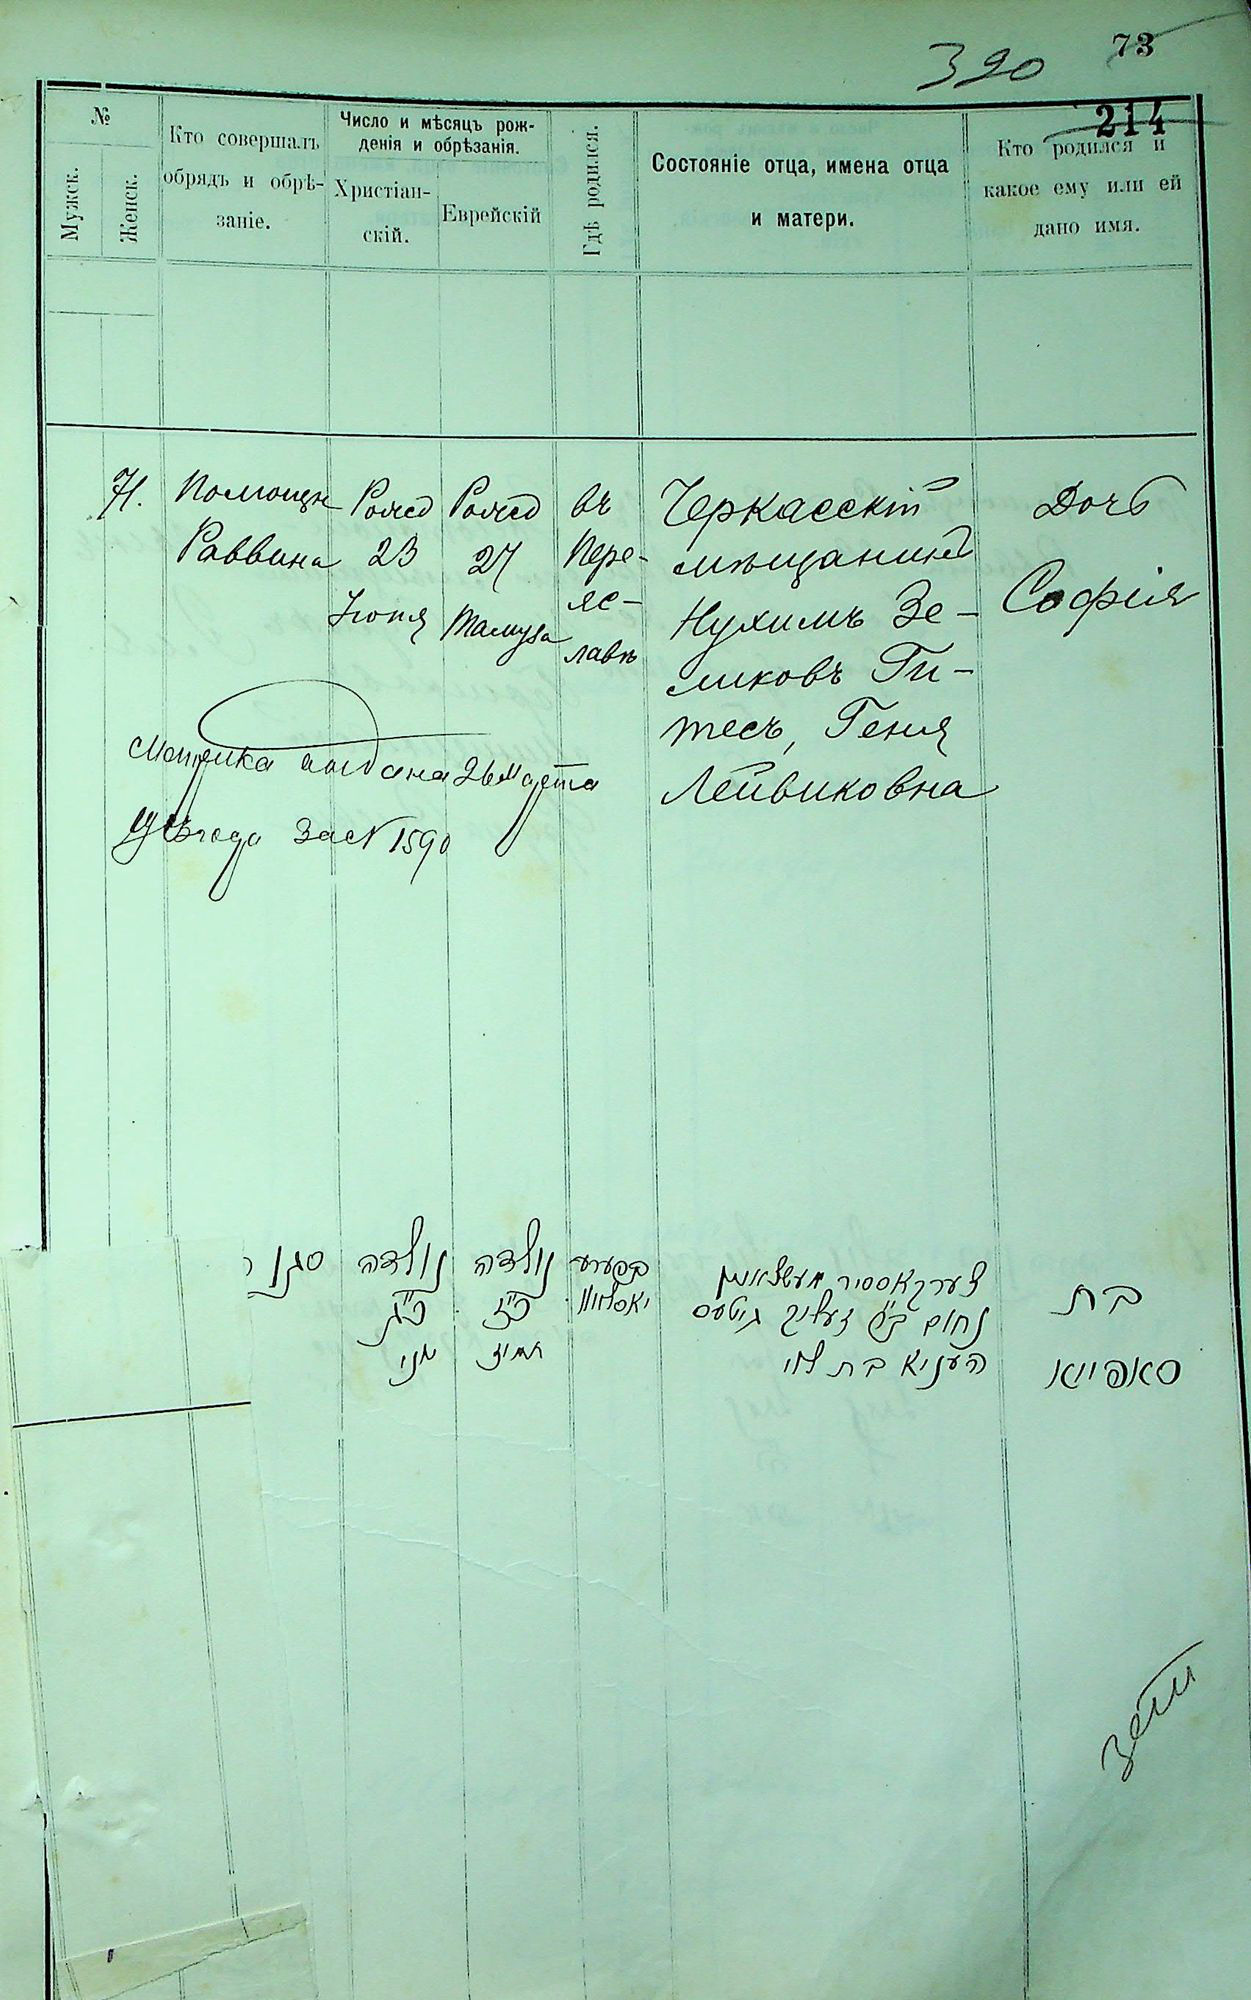 390
73
214
№
Мужск.
Женск.
Кто совершалъ
обрядъ и обрѣ-
заніе.
Число и мѣсяцъ рож-
денія и обрѣзанія.
Христіан-
скій.
Еврейскій
Гдѣ родился.
Состояніе отца, имена отца
и матери.
Кто родился и
какое ему или ей
дано имя.
71.
Помощн
Раввина
Рожд
23
Іюня
Рожд
27
Тамуза
въ
Пере-
яс-
лавѣ
Черкасскій
мѣщанинъ
Нухимъ Зе-
ликовъ Ги-
тесъ, Геня
Лейвиковна
Дочь
Софія
Метрика выдана 26 Марта
года за № 1590
סגן ר
נולדה
כ״ג
יוני
נולדה
כ״ז
תמוז
בפערע
יאסלאוו
צערקאססיר
נחום ב״ר זעליק גיטעס
העניא בת לוי
בת
סאפייא